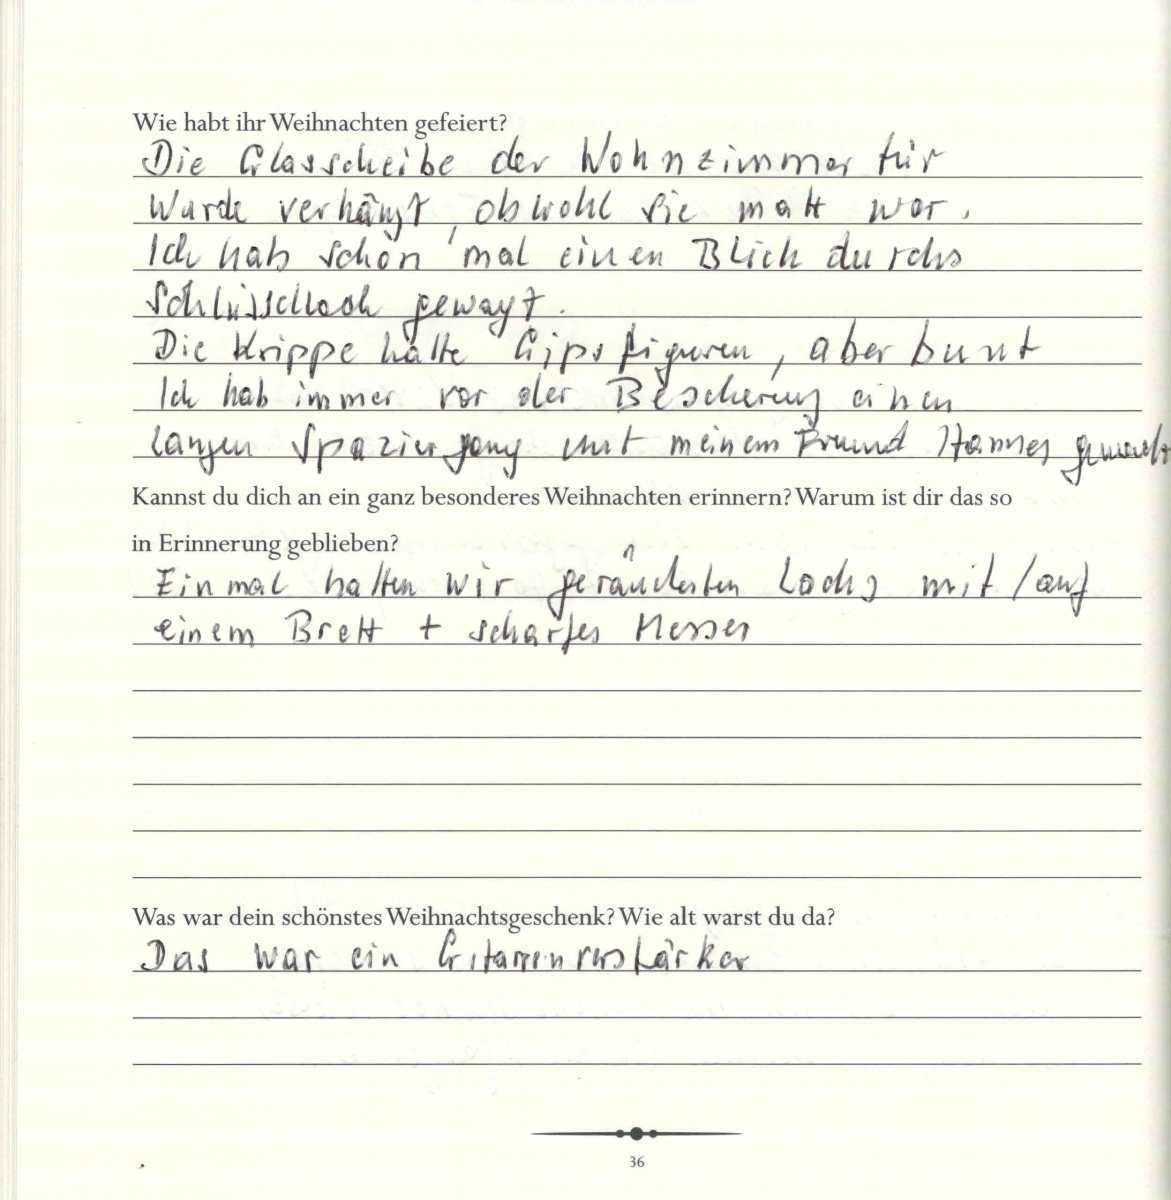 Wie habt ihr Weihnachten gefeiert?
Die Glasscheibe der Wohnzimmertür
wurde verhängt, obwohl sie matt war.
Ich hab schon mal einen Blick durchs
Schlüsselloch gewagt.
Die Krippe hatte Gipsfiguren, aber bunt
Ich hab immer vor der Bescherung einen
langen Spaziergang mit meinem Freund Hannes gemacht
Kannst du dich an ein ganz besonderes Weihnachten erinnern? Warum ist dir das so
in Erinnerung geblieben?
Einmal hatten wir geräucherten Lachs mit/auf
einem Brett + scharfes Messer
Was war dein schönstes Weihnachtsgeschenk? Wie alt warst du da?
Das war ein Gitarrenverstärker
36